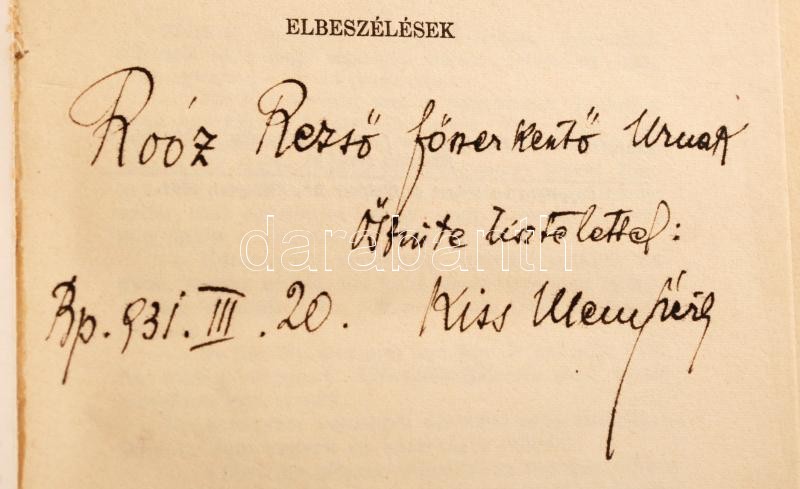 ELBESZÉLÉSEK
Roóz Rezső főszerkentő Urnak
Őszinte tisztelettel:
darabanth
Bp. 931. III. 20. Kiss Menyhért